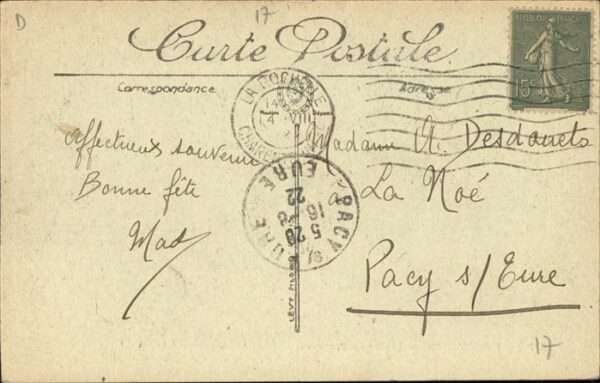 D
17
Carte Postale
Correspondance
Adresse
REPUBLIQUE FRANÇAISE
15c
LA ROCHELLE
14
4 VIII
Affectueux souvenir
Bonne fête
Mad
Madame A. Desdouets
à La Noé
Pacy s/Eure
PACY
EURE
5 28
16 -8
22
LÉVY
17